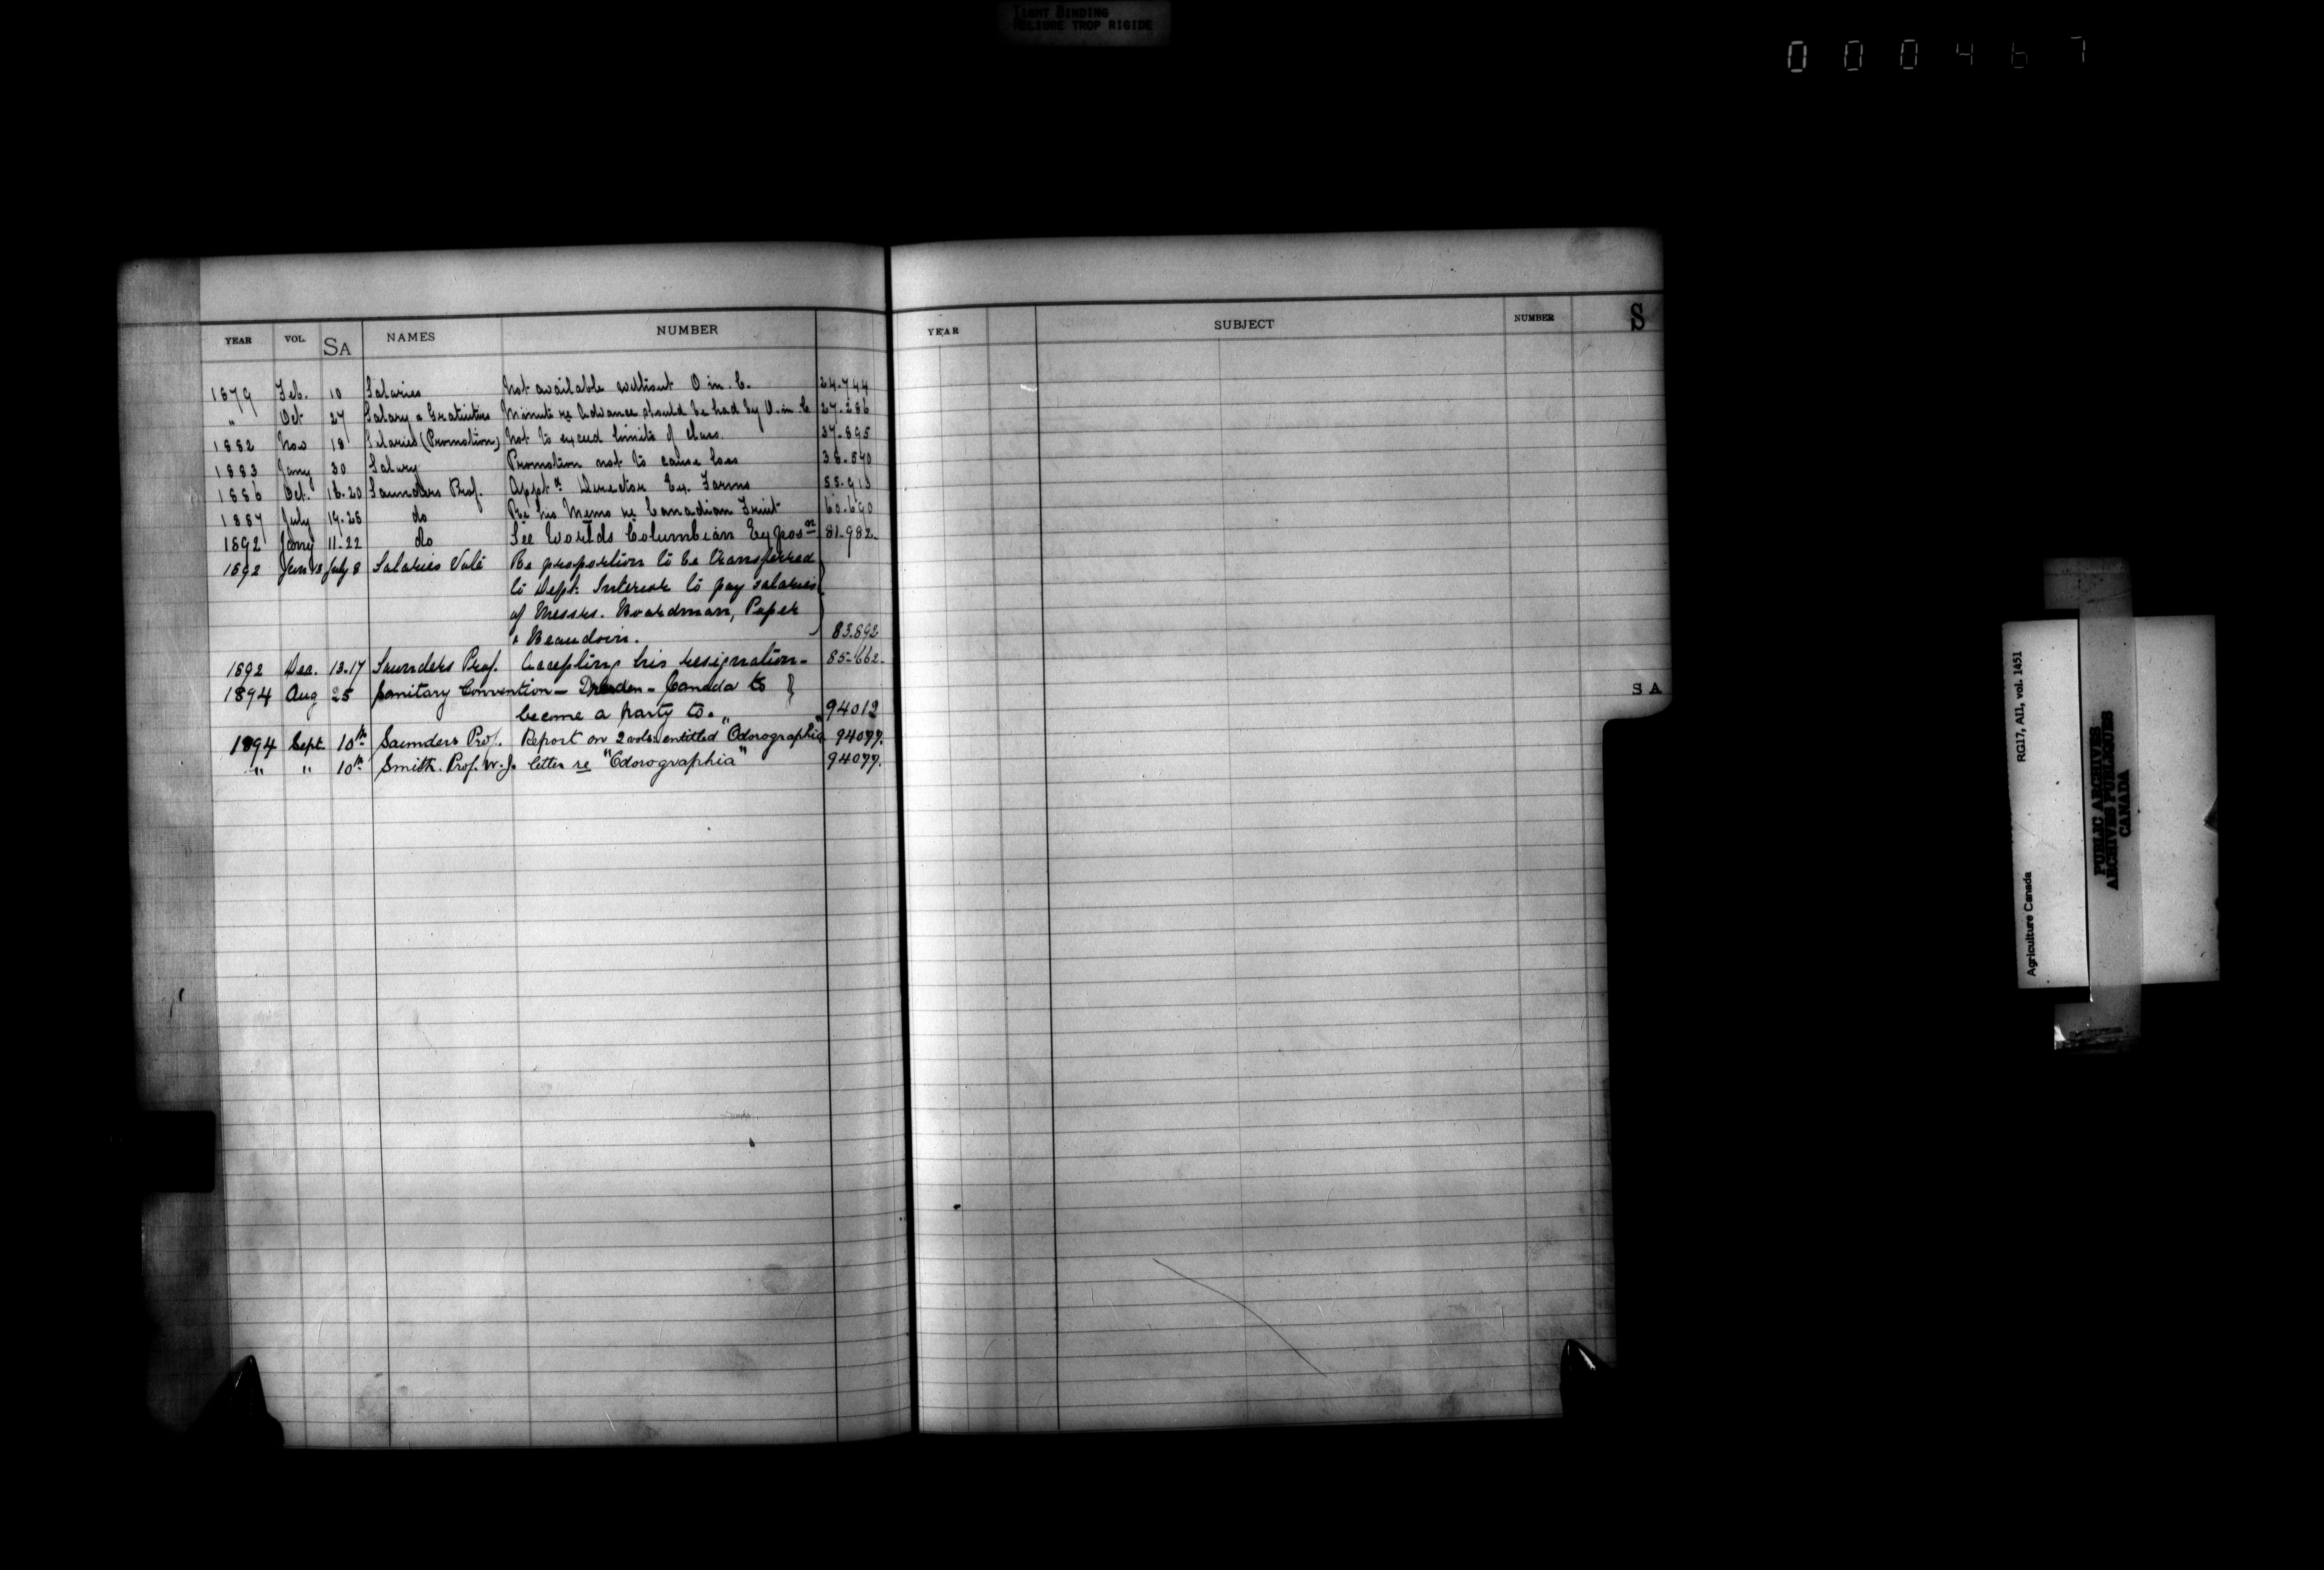 TIGHT BINDING
RELIURE TROP RIGIDE
000467
YEAR VOL. SA NAMES NUMBER
1879 Feb. 10 Salaries Not available without O in. C. 24.744
" Oct 27 Salary & Gratuities Minute re Advance should be had by O. in. C 27.286
1882 Nov 18 Salaries (Promotion) Not to exceed limits of class. 37.895
1883 Jany 30 Salary Promotion not to cause loss 38.840
1886 Oct. 16.20 Saunders Prof. Appt as Director Ex. Farms 55.913
1887 July 19.28 do Re his Memo re Canadian Fruit 60.690
1892 Janry 11.22 do See Worlds Columbian Expos on 81.982.
1892 Jun 13 July 8 Salaries Vote Re proportion to be transferred
to Dept. Interior to pay salaries
of Messrs. Boardman, Poper
& Beaudoin. 83.892
1892 Dec. 13.17 Saunders Prof. Accepting his resignation - 85.662.
1894 Aug 25 Sanitary Convention - Dresden - Canada to
become a party to. 94012
1894 Sept. 10th Saunders Prof. Report on 2 vols. entitled "Odorographia" 94077.
" " 10th Smith. Prof. W. J. letter re "Odorographia" 94077.
YEAR SUBJECT NUMBER S
SA
RG17, AII, vol. 1451
Agriculture Canada
PUBLIC ARCHIVES
ARCHIVES PUBLIQUES
CANADA